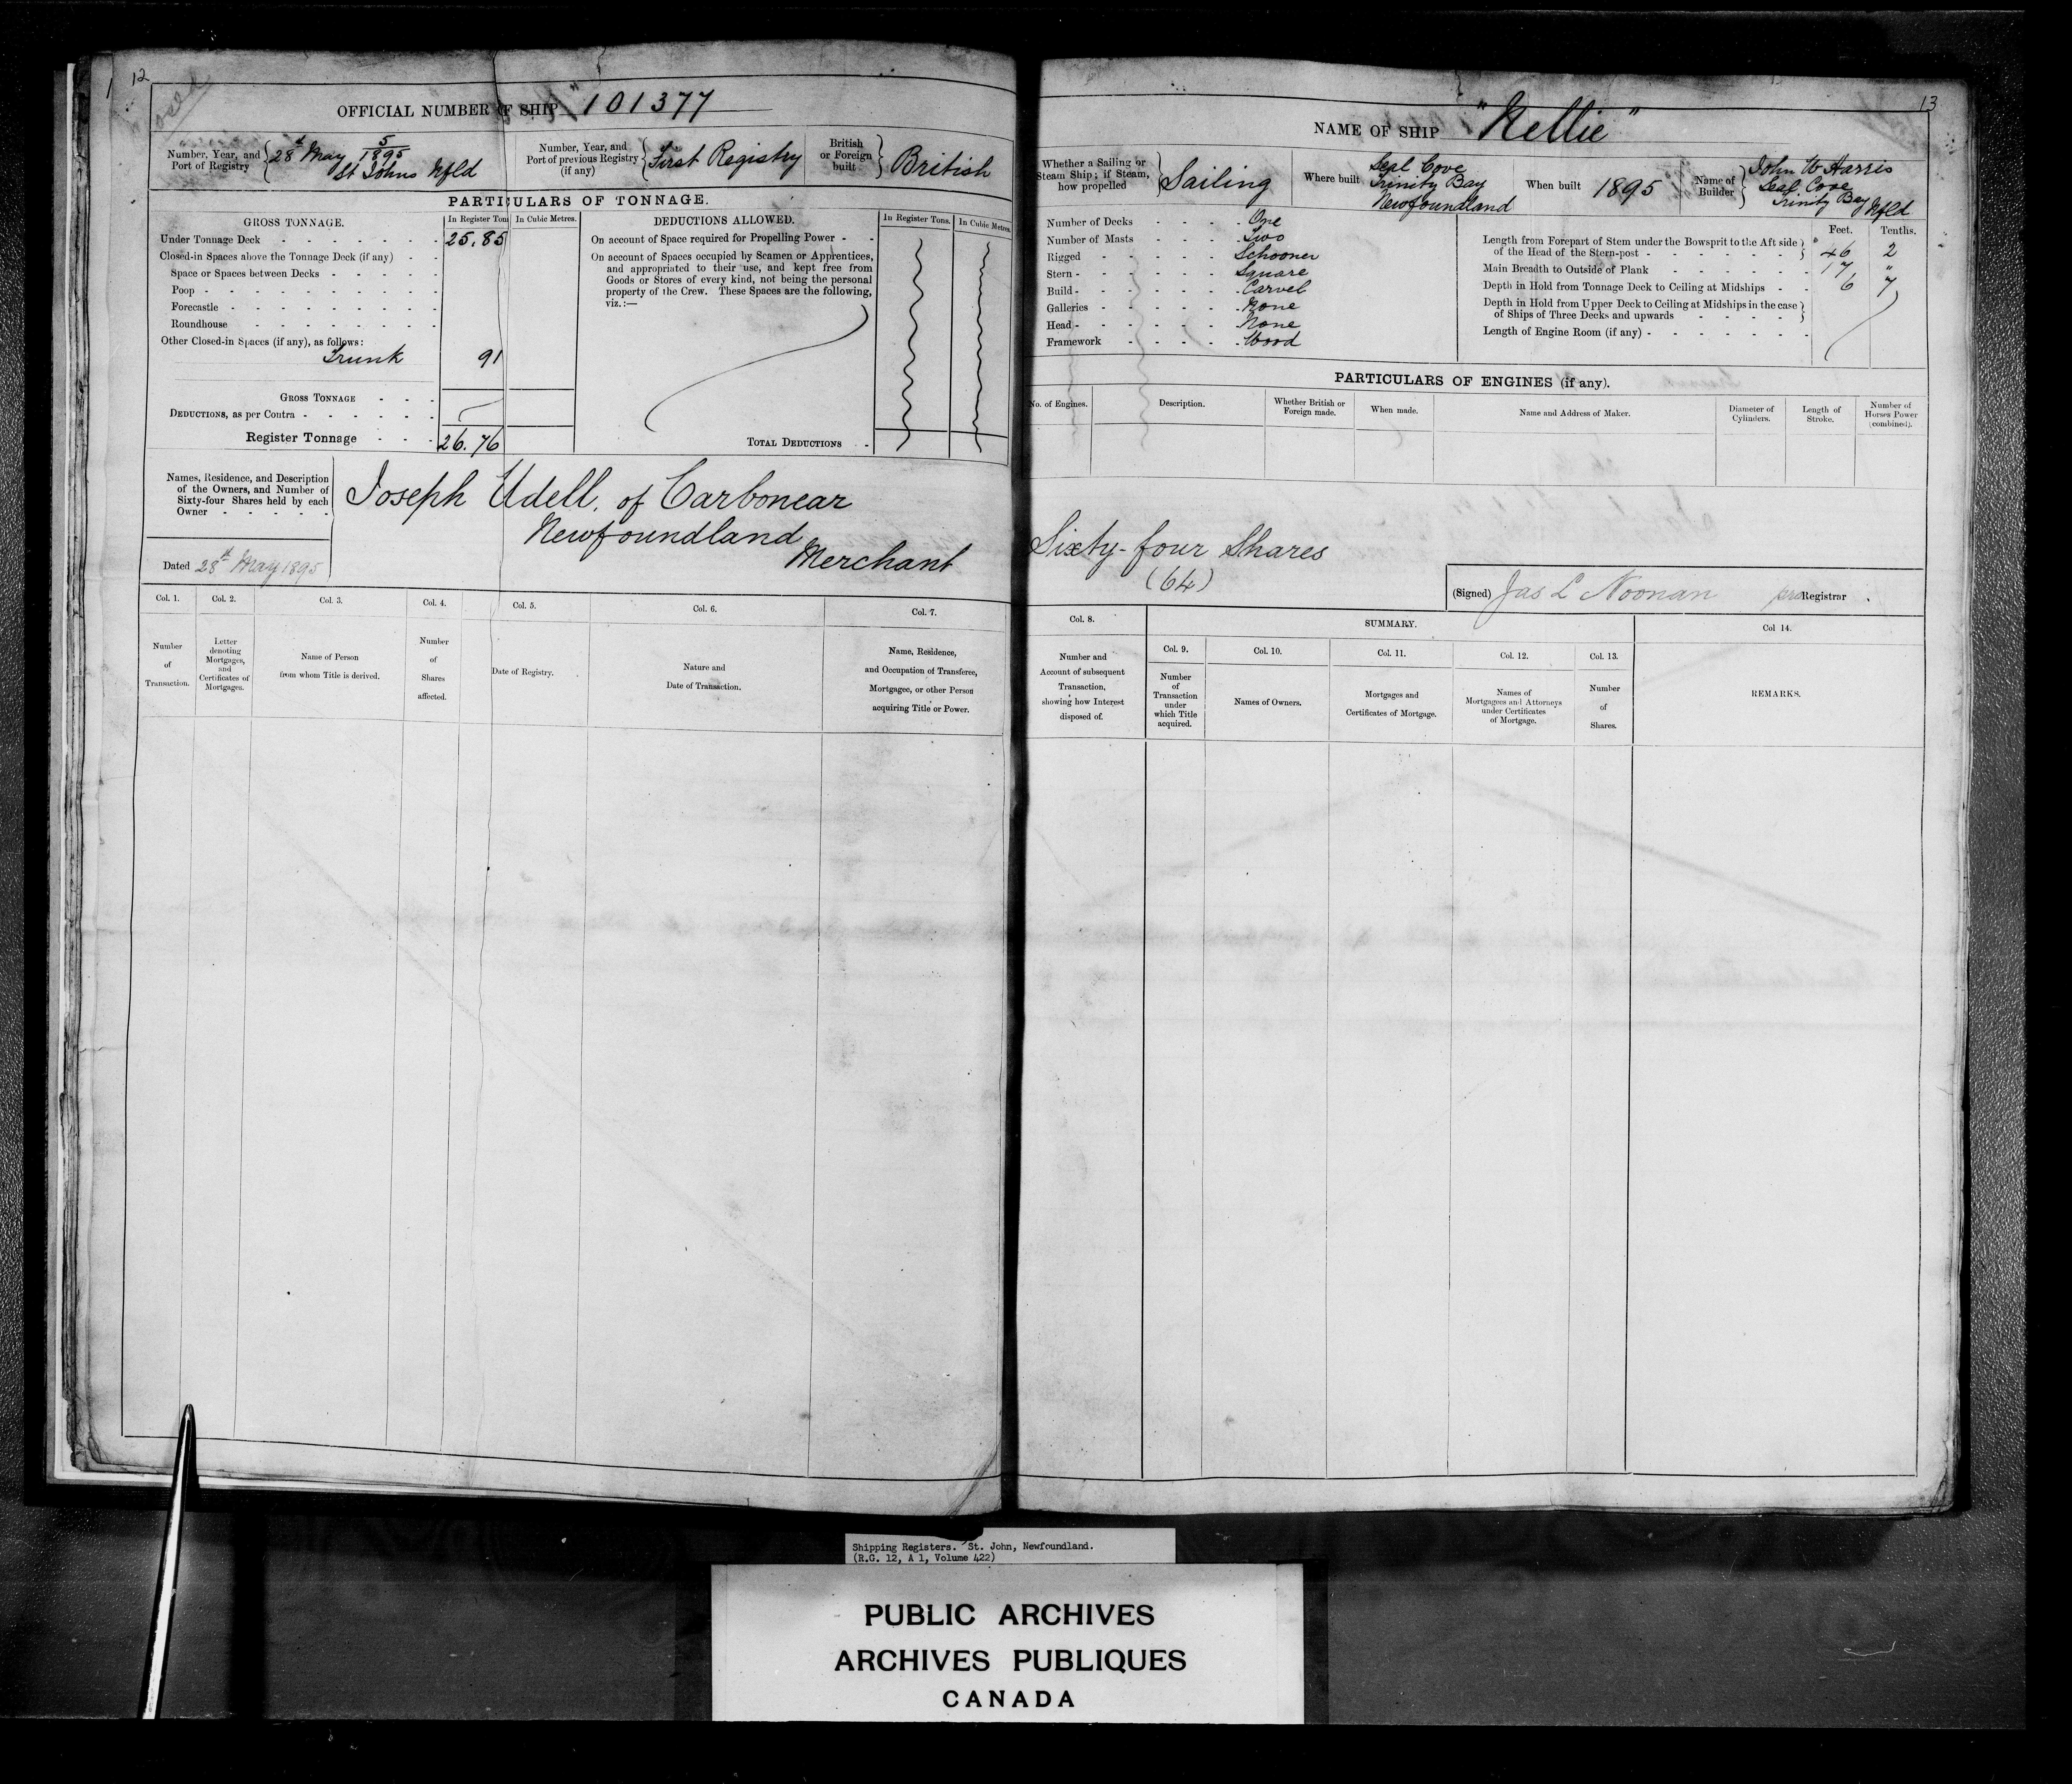 12
Closed
OFFICIAL NUMBER OF SHIP 101377
Number, Year, and Port of Registry 28th May 5/1895 St Johns Nfld
Number, Year, and Port of previous Registry (if any) First Registry
British or Foreign built British
PARTICULARS OF TONNAGE.
GROSS TONNAGE. In Register Tons In Cubic Metres.
Under Tonnage Deck 25.85
Closed-in Spaces above the Tonnage Deck (if any)
Space or Spaces between Decks
Poop
Forecastle
Roundhouse
Other Closed-in Spaces (if any), as follows:
Trunk 91
GROSS TONNAGE
DEDUCTIONS, as per Contra
Register Tonnage 26.76
DEDUCTIONS ALLOWED. In Register Tons. In Cubic Metres.
On account of Space required for Propelling Power
On account of Spaces occupied by Seamen or Apprentices,
and appropriated to their use, and kept free from
Goods or Stores of every kind, not being the personal
property of the Crew. These Spaces are the following,
viz.:—
TOTAL DEDUCTIONS
Names, Residence, and Description
of the Owners, and Number of
Sixty-four Shares held by each
Owner
Joseph Udell, of Carbonear
Newfoundland
Merchant
Dated 28th May 1895
Col. 1. Col. 2. Col. 3. Col. 4. Col. 5. Col. 6. Col. 7.
Number of Transaction.
Letter denoting Mortgages, and Certificates of Mortgages.
Name of Person from whom Title is derived.
Number of Shares affected.
Date of Registry.
Nature and Date of Transaction.
Name, Residence, and Occupation of Transferee, Mortgagee, or other Person acquiring Title or Power.
13
NAME OF SHIP "Nellie"
Whether a Sailing or Steam Ship; if Steam, how propelled Sailing
Where built Seal Cove Trinity Bay Newfoundland
When built 1895
Name of Builder John W Harris Seal Cove Trinity Bay Nfld
Number of Decks One
Number of Masts Two
Rigged Schooner
Stern Square
Build Carvel
Galleries None
Head None
Framework Wood
Feet. Tenths.
Length from Forepart of Stem under the Bowsprit to the Aft side
of the Head of the Stern-post 46 2
Main Breadth to Outside of Plank 17 "
Depth in Hold from Tonnage Deck to Ceiling at Midships 6 7
Depth in Hold from Upper Deck to Ceiling at Midships in the case
of Ships of Three Decks and upwards
Length of Engine Room (if any)
PARTICULARS OF ENGINES (if any).
No. of Engines. Description. Whether British or Foreign made. When made. Name and Address of Maker. Diameter of Cylinders. Length of Stroke. Number of Horses Power (combined).
Sixty-four Shares
(64)
(Signed) Jas L Noonan pro Registrar.
Col. 8. SUMMARY. Col 14.
Number and Account of subsequent Transaction, showing how Interest disposed of.
Col. 9. Col. 10. Col. 11. Col. 12. Col. 13.
Number of Transaction under which Title acquired.
Names of Owners.
Mortgages and Certificates of Mortgage.
Names of Mortgagees and Attorneys under Certificates of Mortgage.
Number of Shares.
REMARKS.
Shipping Registers. St. John, Newfoundland.
(R.G. 12, A 1, Volume 422)
PUBLIC ARCHIVES
ARCHIVES PUBLIQUES
CANADA